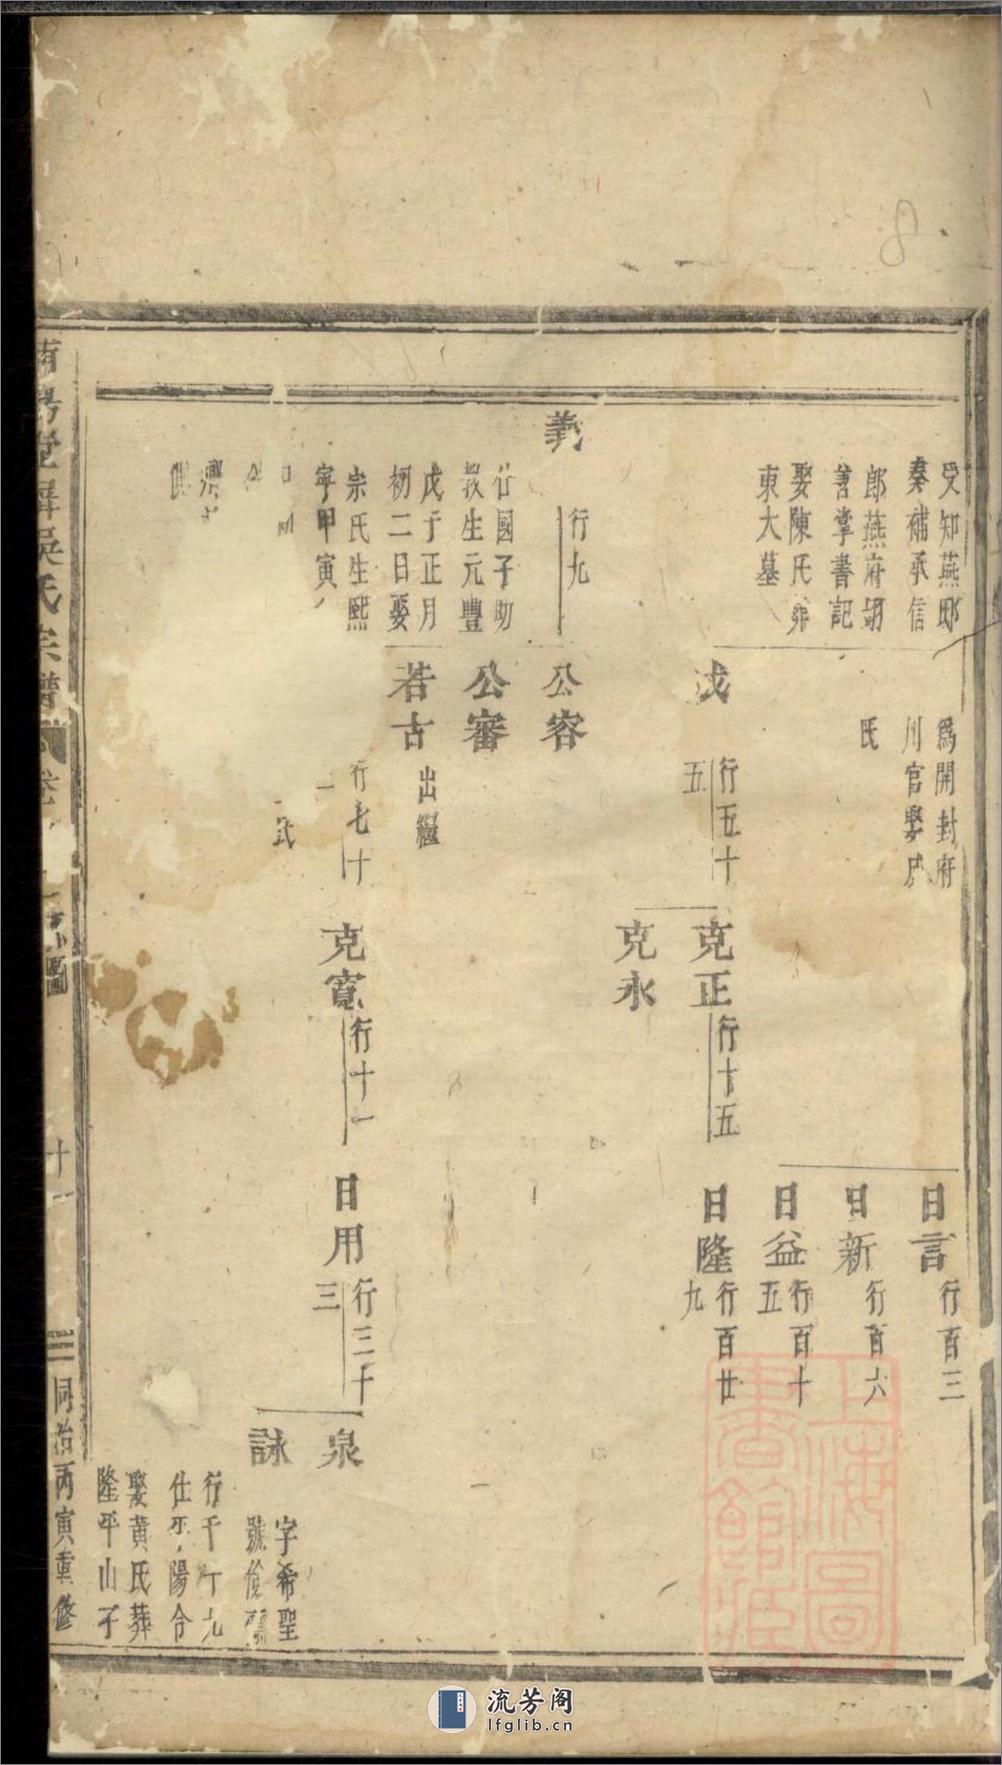 受知燕邸
奏補承信
郎燕府翊
善掌書記
娶陳氏葬
東大墓
爲開封府
川官娶戶
氏
日言
行百三
日新
行百六
日益
行百十
五
日隆
行百廿
九
戊
行五十
五
克正
行十五
克永
義
行九
仕國子助
教生元豐
戊午正月
初二日娶
宗氏生熙
寧甲寅
公容
公審
若古
出繼
行七十
一
氏
克寬
行十一
日用
行三十
三
泉
詠
字希聖
號俊
行千
九
仕平陽令
娶黃氏葬
隆平山
堂 吳氏宗譜
卷
圖
十一
同治丙寅重修
上海圖書館藏
8
流芳阁
lfglib.cn